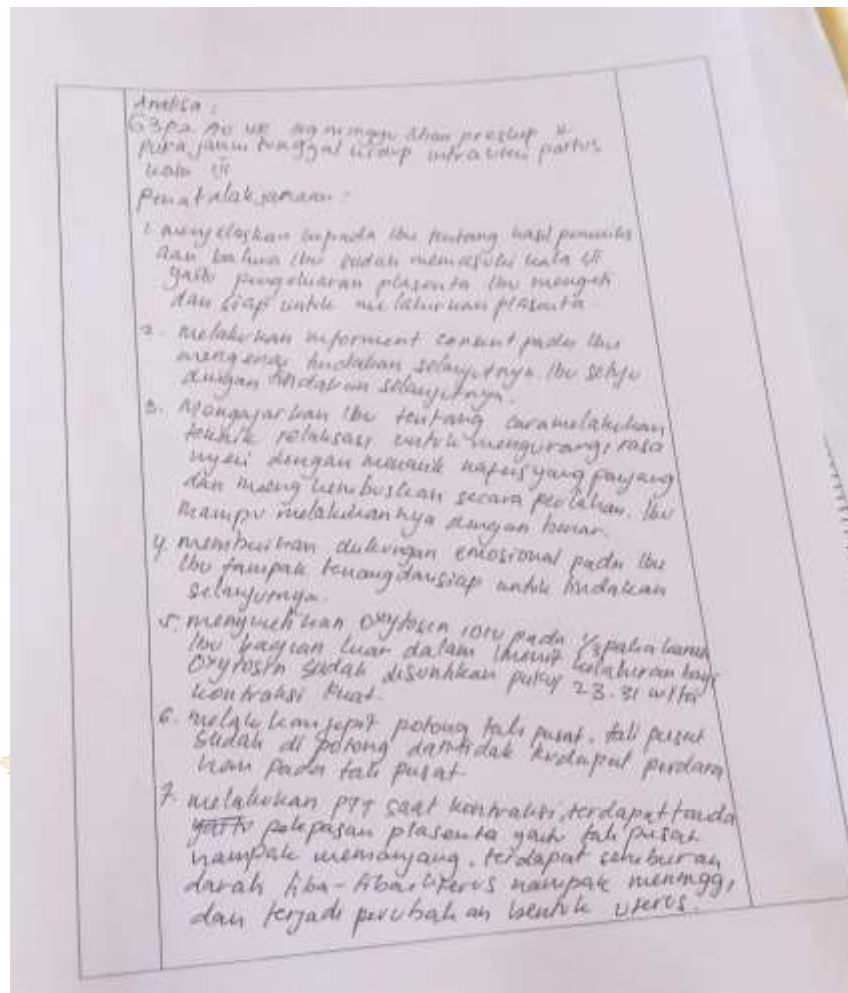 Analisa :
G3P2 A0 UK minggu preskep U
puka janin tunggal hidup intrauteri partus
kala III
Penatalaksanaan :
1. menjelaskan kepada Ibu tentang hasil pemeriks
aan bahwa Ibu sudah memasuki kala III
yaitu pengeluaran plasenta Ibu mengerti
dan siap untuk melahirkan plasenta.
2. melakukan informent consent pada Ibu
mengenai tindakan selanjutnya. Ibu setuju
dengan tindakan selanjutnya.
3. Mengajarkan Ibu tentang cara melakukan
teknik relaksasi untuk mengurangi rasa
nyeri dengan menarik nafas yang panjang
dan menghembuskan secara perlahan. Ibu
mampu melakukannya dengan benar.
4. memberikan dukungan emosional pada Ibu
Ibu tampak tenang dan siap untuk tindakan
selanjutnya.
5. menyuntikan Oxytosin 10 IU pada 1/3 paha kanan
Ibu bagian luar dalam 1 menit kelahiran bayi
Oxytosin sudah disuntikkan pukul 23.31 wita
kontraksi kuat.
6. melakukan jepit potong tali pusat, tali pusat
sudah di potong dan tidak terdapat perdara
han pada tali pusat.
7. melakukan PTT saat kontraksi, terdapat tanda
pelepasan plasenta yaitu tali pusat
nampak memanjang, terdapat semburan
darah tiba-tiba uterus nampak meninggi
dan terjadi perubahan bentuk uterus.